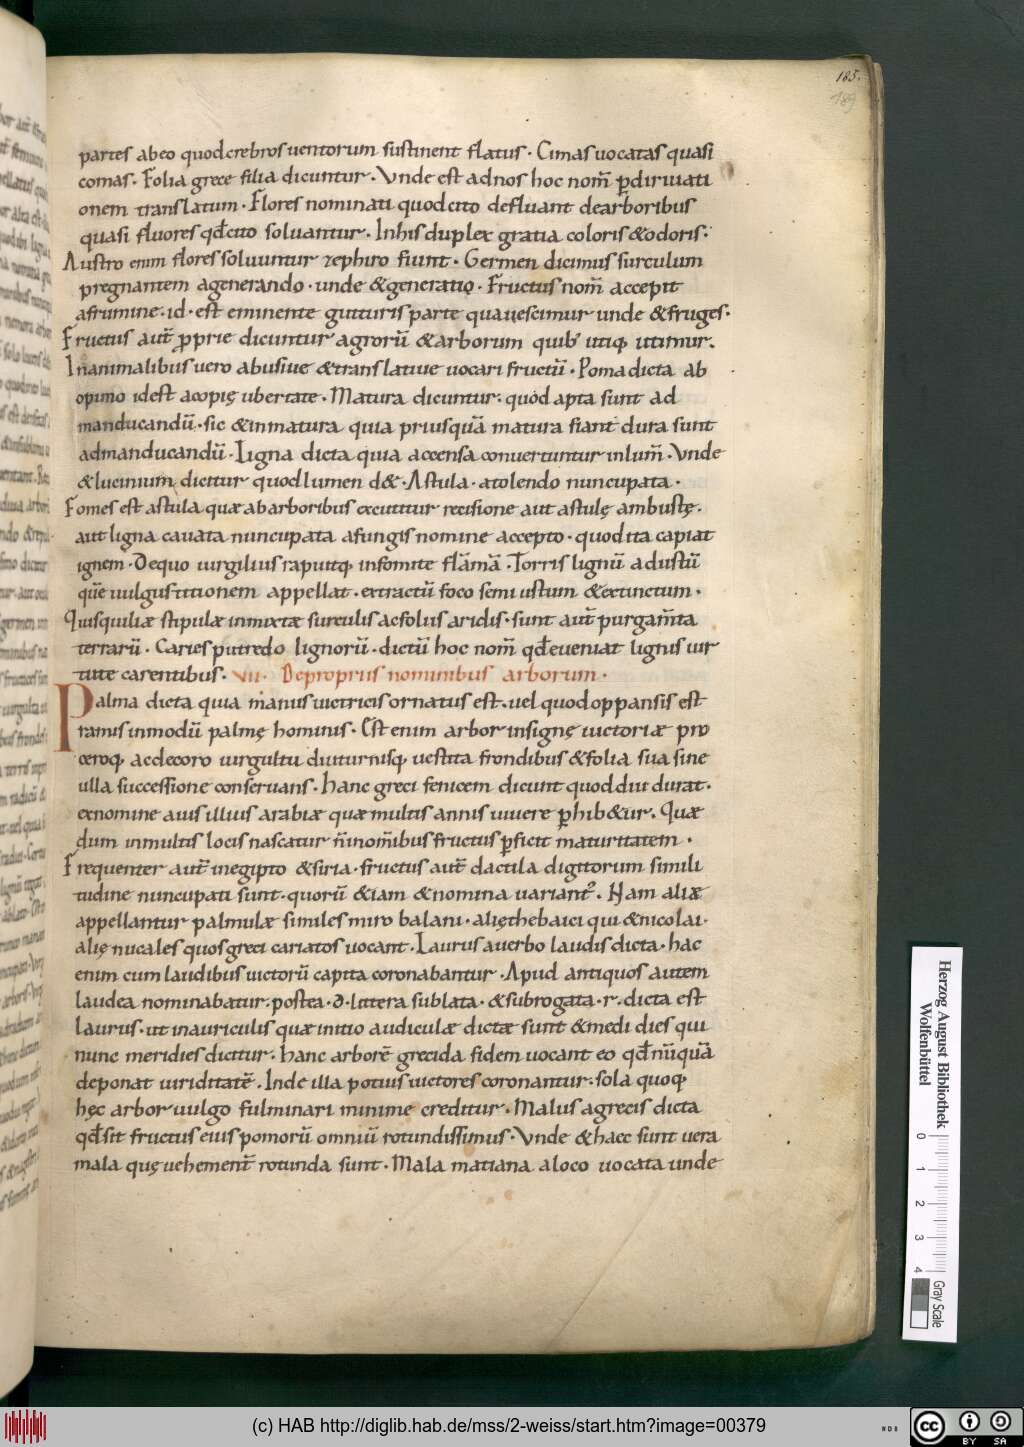 185.
189
partes abeo quodcrebros uentorum sustinent flatus · Cimas uocatas quasi
comas · Folia grece filia dicuntur · Vnde est adnos hoc nom̄ p̄diriuati
onem translatum · Flores nominati quodcito defluant dearboribus
quasi fluores qđcito soluantur · Inhis duplex gratia coloris &odoris ·
Austro enim flores soluuntur zephiro fiunt · Germen dicimus surculum
pregnantem agenerando · unde &generatio · Fructus nom̄ accepit
afrumine · id · est eminente gutturis parte quauescimur unde &fruges ·
Fructus aut̄ p̄prie dicuntur agrorū &arborum quib' utiq; utimur.
Inanimalibus uero abusiue &translatiue uocari fructū · Poma dicta ab
opimo idest acopię ubertate · Matura dicuntur: quod apta sunt ad
manducandū · sic &inmatura quia priusquā matura fiant dura sunt
admanducandū · Ligna dicta quia accensa conuertuntur inlum̄ · Vnde
&lucinium dicitur quodlumen d& · Astula · atolendo nuncupata ·
Fomes est astula quæ abarboribus excutitur recisione aut astulę ambustę.
aut ligna cauata nuncupata afungis nomine accepto · quod ita capiat
ignem · Dequo uirgilius rapuitq; infomite flāmā · Torris lignū adustū
quē uulgus titionem appellat · extractū foco semi ustum &extinctum ·
Quisquiliæ stipulæ inmixtæ surculis acfoliis aridis · sunt aut̄ purgam̄ta
terrarū · Caries putredo lignorū · dictū hoc nom̄ qđeueniat lignis uir
tute carentibus. VII · Depropriis nominibus arborum ·
Palma dicta quia manus uictricis ornatus est · uel quod oppansis est
ramis inmodū palmę hominis · Est enim arbor insignę uictoriæ pro
ceroq; acdecoro uirgultu diuturnisq; uestita frondibus &folia sua sine
ulla successione conseruans · hanc greci fenicem dicunt quod diu durat ·
exnomine auis illius arabiæ quæ multis annis uiuere p̄hib&ur · Quæ
dum inmultis locis nascatur n̄inom̄ibus fructus p̄ficit maturitatem ·
Frequenter aut̄ inegipto &siria · fructus aut̄ dactila digitorum simili
tudine nuncupati sunt · quorū &iam &nomina uariant². Nam aliæ
appellantur palmulæ similes miro balani · alięthebaici qui &nicolai ·
alię nucales quos greci cariatos uocant · Laurus auerbo laudis dicta · hac
enim cum laudibus uictorū capita coronabantur · Apud antiquos autem
laudea nominabatur: postea · d · littera sublata · &subrogata · r · dicta est
laurus · ut inauriculis quæ initio audiculæ dictæ sunt &medi dies qui
nunc meridies dicitur · hanc arborē grecida fidem uocant eo qđnūquā
deponat uiriditatē · Inde illa potius uictores coronantur: sola quoq;
hęc arbor uulgo fulminari minime creditur · Malus agrecis dicta
qđsit fructus eius pomorū omniū rotundissimus · Vnde &haec sunt uera
mala quę uehement̄ rotunda sunt · Mala matiana aloco uocata unde
Herzog August Bibliothek
Wolfenbüttel
0 1 2 3 4
Gray Scale
(c) HAB http://diglib.hab.de/mss/2-weiss/start.htm?image=00379
WDB
cc BY SA